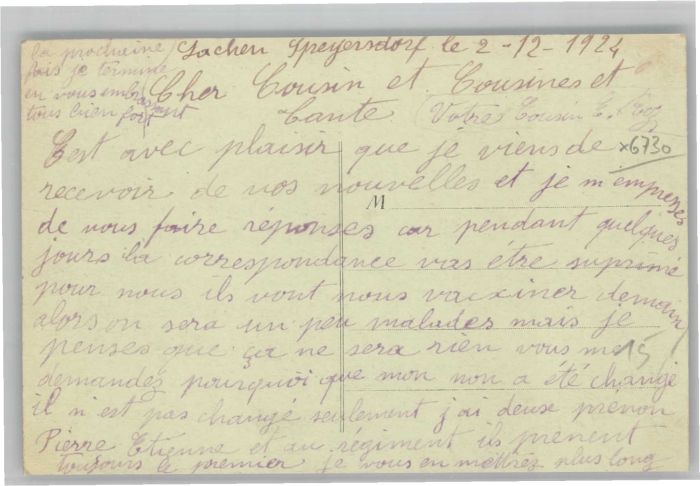 Lachen Speyersdorf le 2-12-1924
Cher Cousin et Cousines et
Tante
C'est avec plaisir que je viens de
recevoir de vos nouvelles et je m'empresses
de vous faire réponses car pendant quelques
jours la correspondance vas être suprimé
pour nous ils vont nous vacxiner demain
alors on sera un peu malades mais je
penses que ça ne sera rien vous me
demandez pourquoi que mon non a été changé
il n'est pas changé seulement j'ai deux prénon
Pierre Etienne et au régiment ils prènent
toujours le premier je vous en mettrez plus long
la prochaine
fois je termine
en vous embrassant
tous bien fort
Votre Cousin E.
x6730
M
15